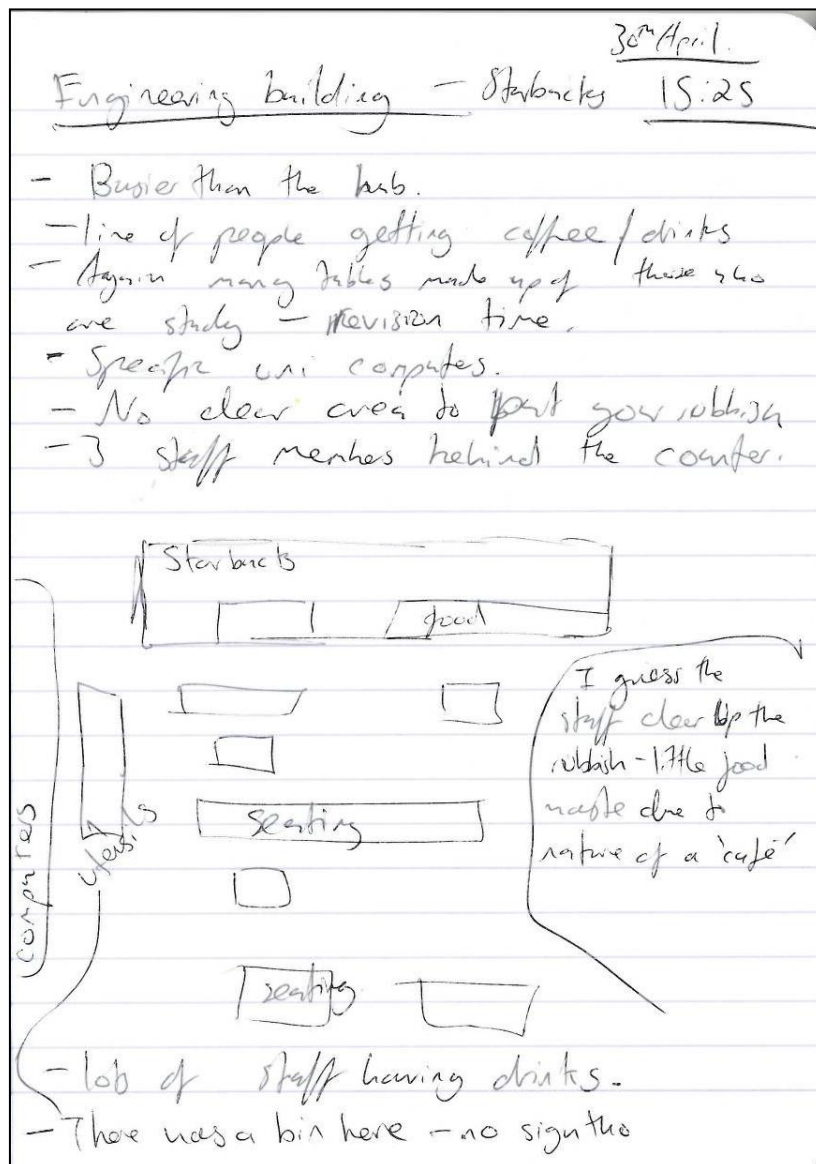 30th April.
Engineering building - Starbucks 15:25
- Busier than the hub.
- line of people getting coffee/drinks
- Again many tables made up of those who
are study - revision time.
- Specific uni computers.
- No clear area to put your rubbish
- 3 staff members behind the counter.
Starbucks
food
I guess the
staff clear up the
rubbish - little food
waste due to
nature of a 'café'
seating
utensils
computers
seating
- lots of staff having drinks.
- There was a bin here - no sign tho